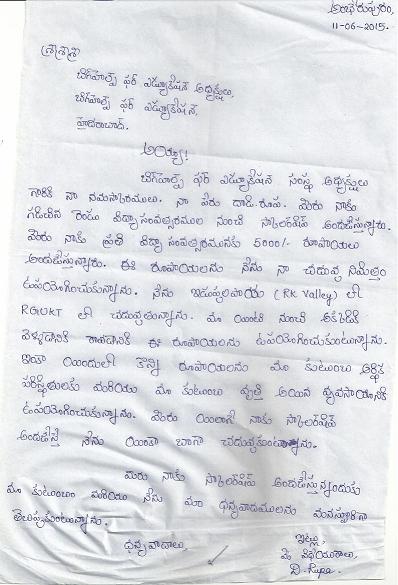 అంభేరుపురం,
11-06-2015.
శ్రీశ్రీశ్రీ
బిగ్‌హెల్ప్ ఫర్ ఎడ్యూకేషన్ అధ్యక్షులు,
బిగ్‌హెల్ప్ ఫర్ ఎడ్యూకేషన్,
హైదరాబాద్.
అయ్యా!
బిగ్‌హెల్ప్ ఫర్ ఎడ్యూకేషన్ సంస్థ అధ్యక్షులు
గారికి నా నమస్కారములు. నా పేరు దాడి.రూప. మీరు నాకు
గడిచిన రెండు విద్యాసంవత్సరముల నుంచి స్కాలర్‌షిప్ అందజేస్తున్నారు.
మీరు నాకు ప్రతి విద్యా సంవత్సరమునకు 5000/- రూపాయలు
అందజేస్తున్నారు. ఈ రూపాయలను నేను నా చదువు నిమిత్తం
ఉపయోగించుకున్నాను. నేను ఇడుపులపాయ (RK Valley) లో
RGUKT లో చదువుతున్నాను. మా యింటి నుంచి అక్కడికి
వెళ్ళడానికి రావడానికి ఈ రూపాయలను ఉపయోగించుకుంటున్నాను.
ఇంకా యిందులో కొన్ని రూపాయలను మా కుటుంబ ఆర్థిక
పరిస్థితులకు మరియు మా కుటుంబ వృత్తి అయిన వ్యవసాయానికి
ఉపయోగించుకున్నాను. మీరు యిలాగే నాకు స్కాలర్‌షిప్
అందజేస్తే నేను యింకా బాగా చదువుకుంటున్నాను.
మీరు నాకు స్కాలర్‌షిప్ అందజేస్తున్నందుకు
మా కుటుంబం మరియు నేను మా ధన్యవాదములను మనస్ఫూర్తిగా
తెలుపుకుంటున్నాను.
ధన్యవాదాలు,
ఇట్లు,
మీ విధేయురాలు,
D. Rupa.